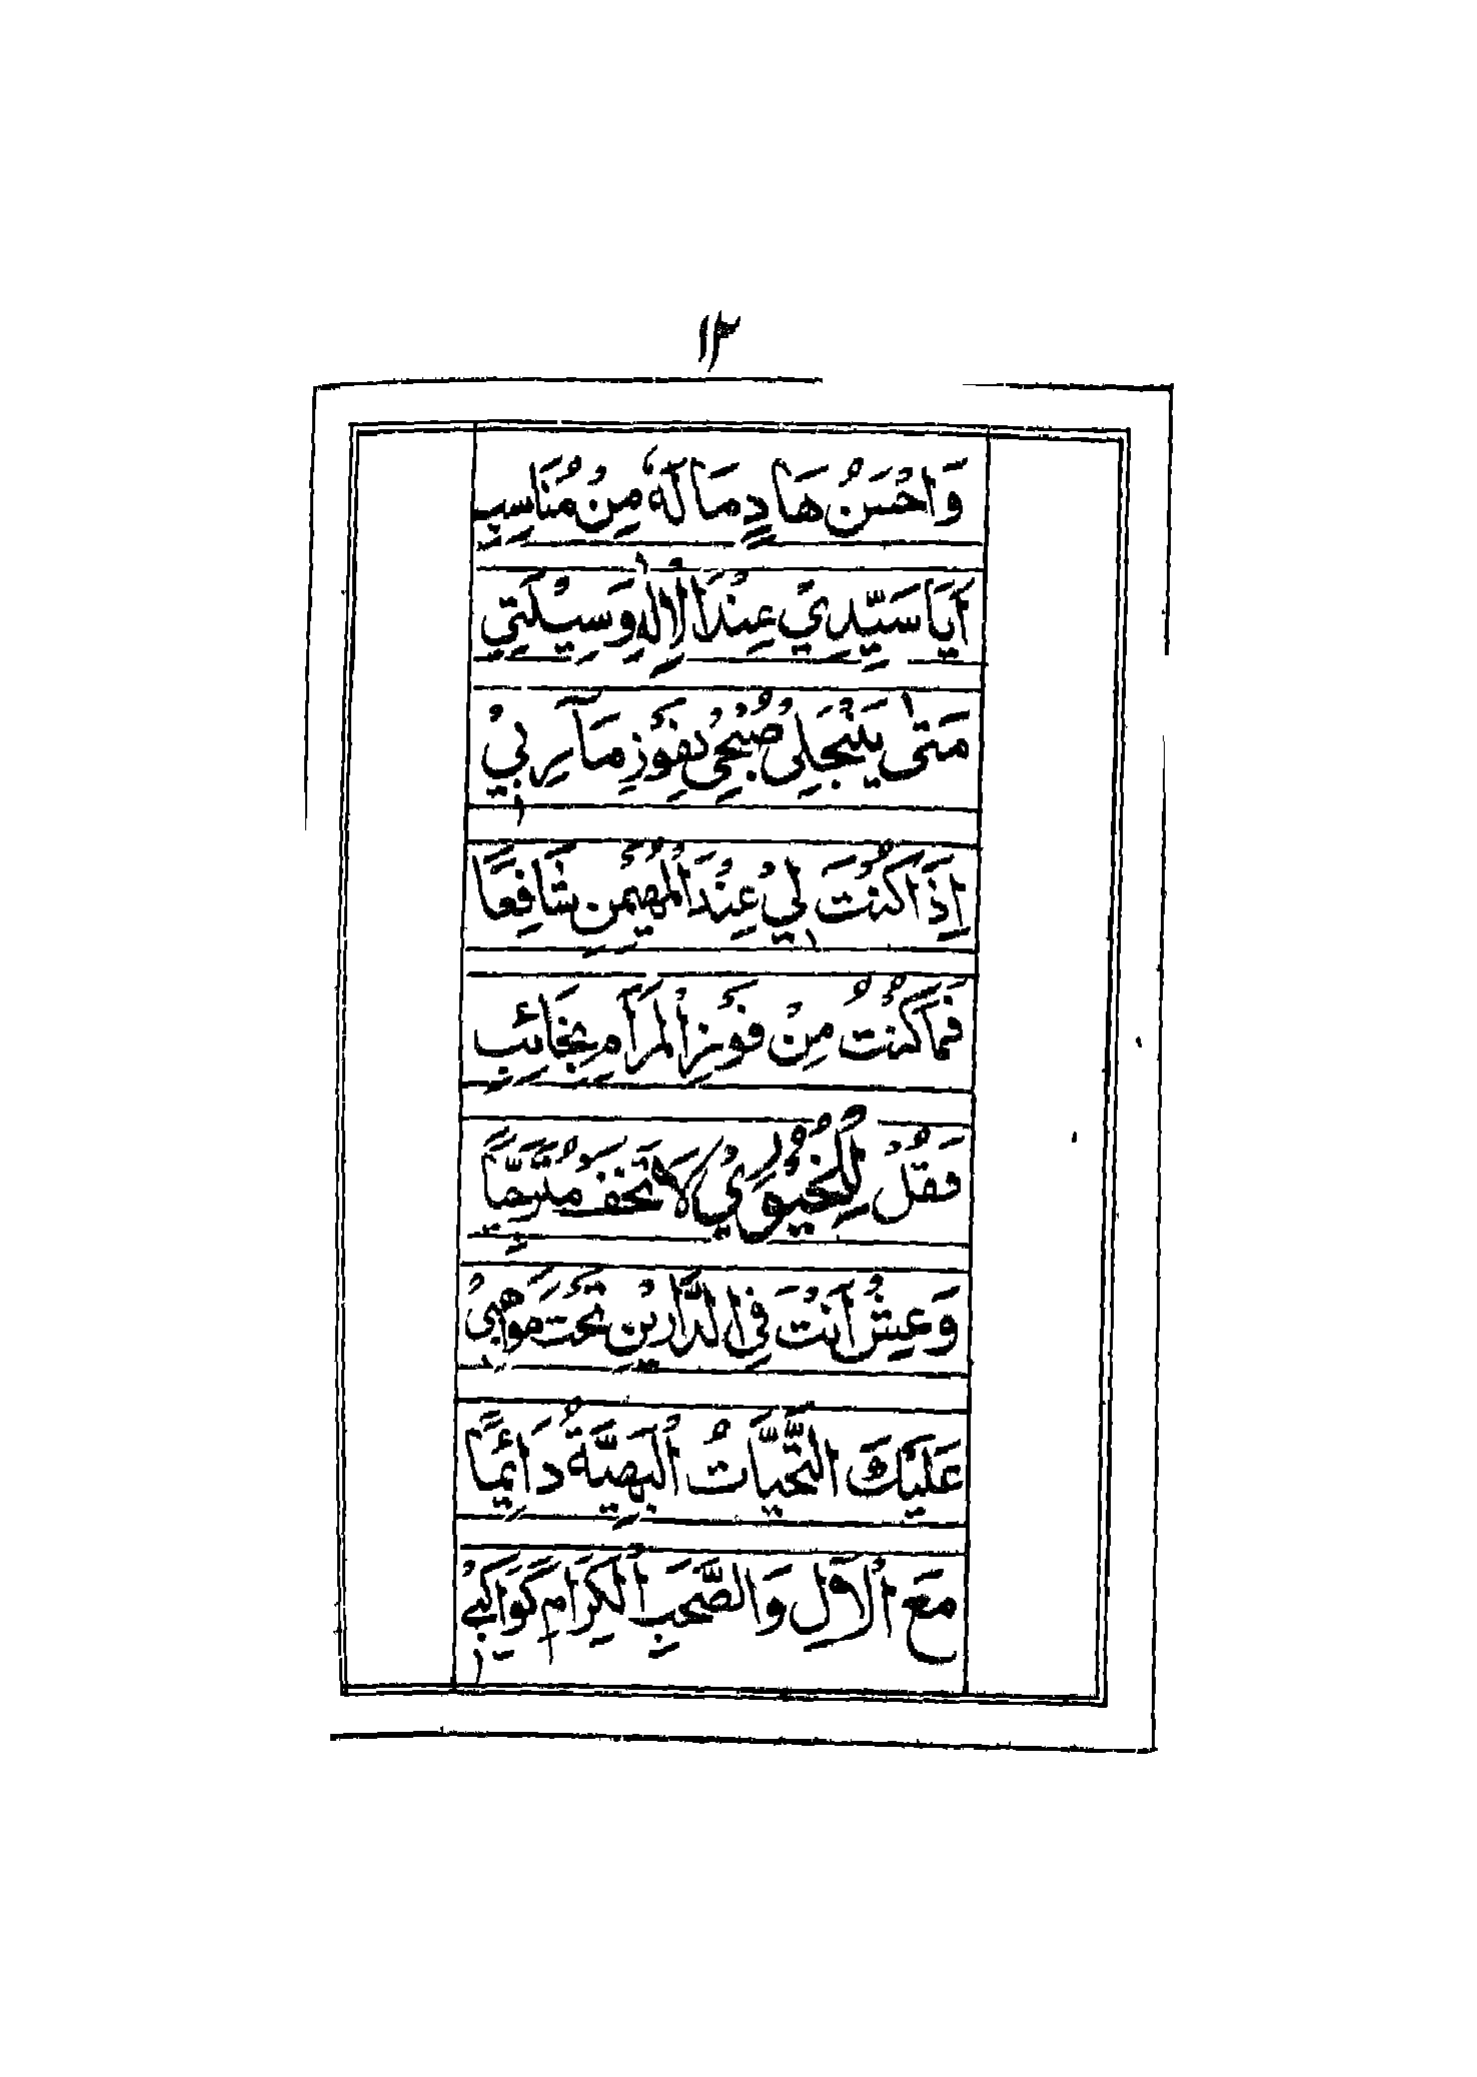 ١٣
وَاَحْسَنُ هَادٍ مَا لَهُ مِنْ مُنَاسِبِ
اَيَا سَيِّدِيْ عِنْدَ الْاِلٰهِ وَسِيْلَتِيْ
مَتٰى يَنْجَلِىْ صُبْحِىْ بِفَوْزِ مَآرِبِيْ
اِذَا كُنْتَ لِيْ عِنْدَ الْمُهَيْمِنِ شَافِعًا
فَمَا كُنْتُ مِنْ فَوْزِ الْمَرَامِ بِخَائِبِ
فَقُلْ لِلْخُيُوْرِيْ لَا تَخَفْ مُتَرَجِّيًا
وَعِشْ اَنْتَ فِى الدَّارَيْنِ تَحْتَ مَوَاهِبِيْ
عَلَيْكَ التَّحِيَّاتُ الْبَهِيَّةُ دَائِمًا
مَعَ الْاٰلِ وَالصَّحْبِ الْكِرَامِ كَوَاكِبِيْ